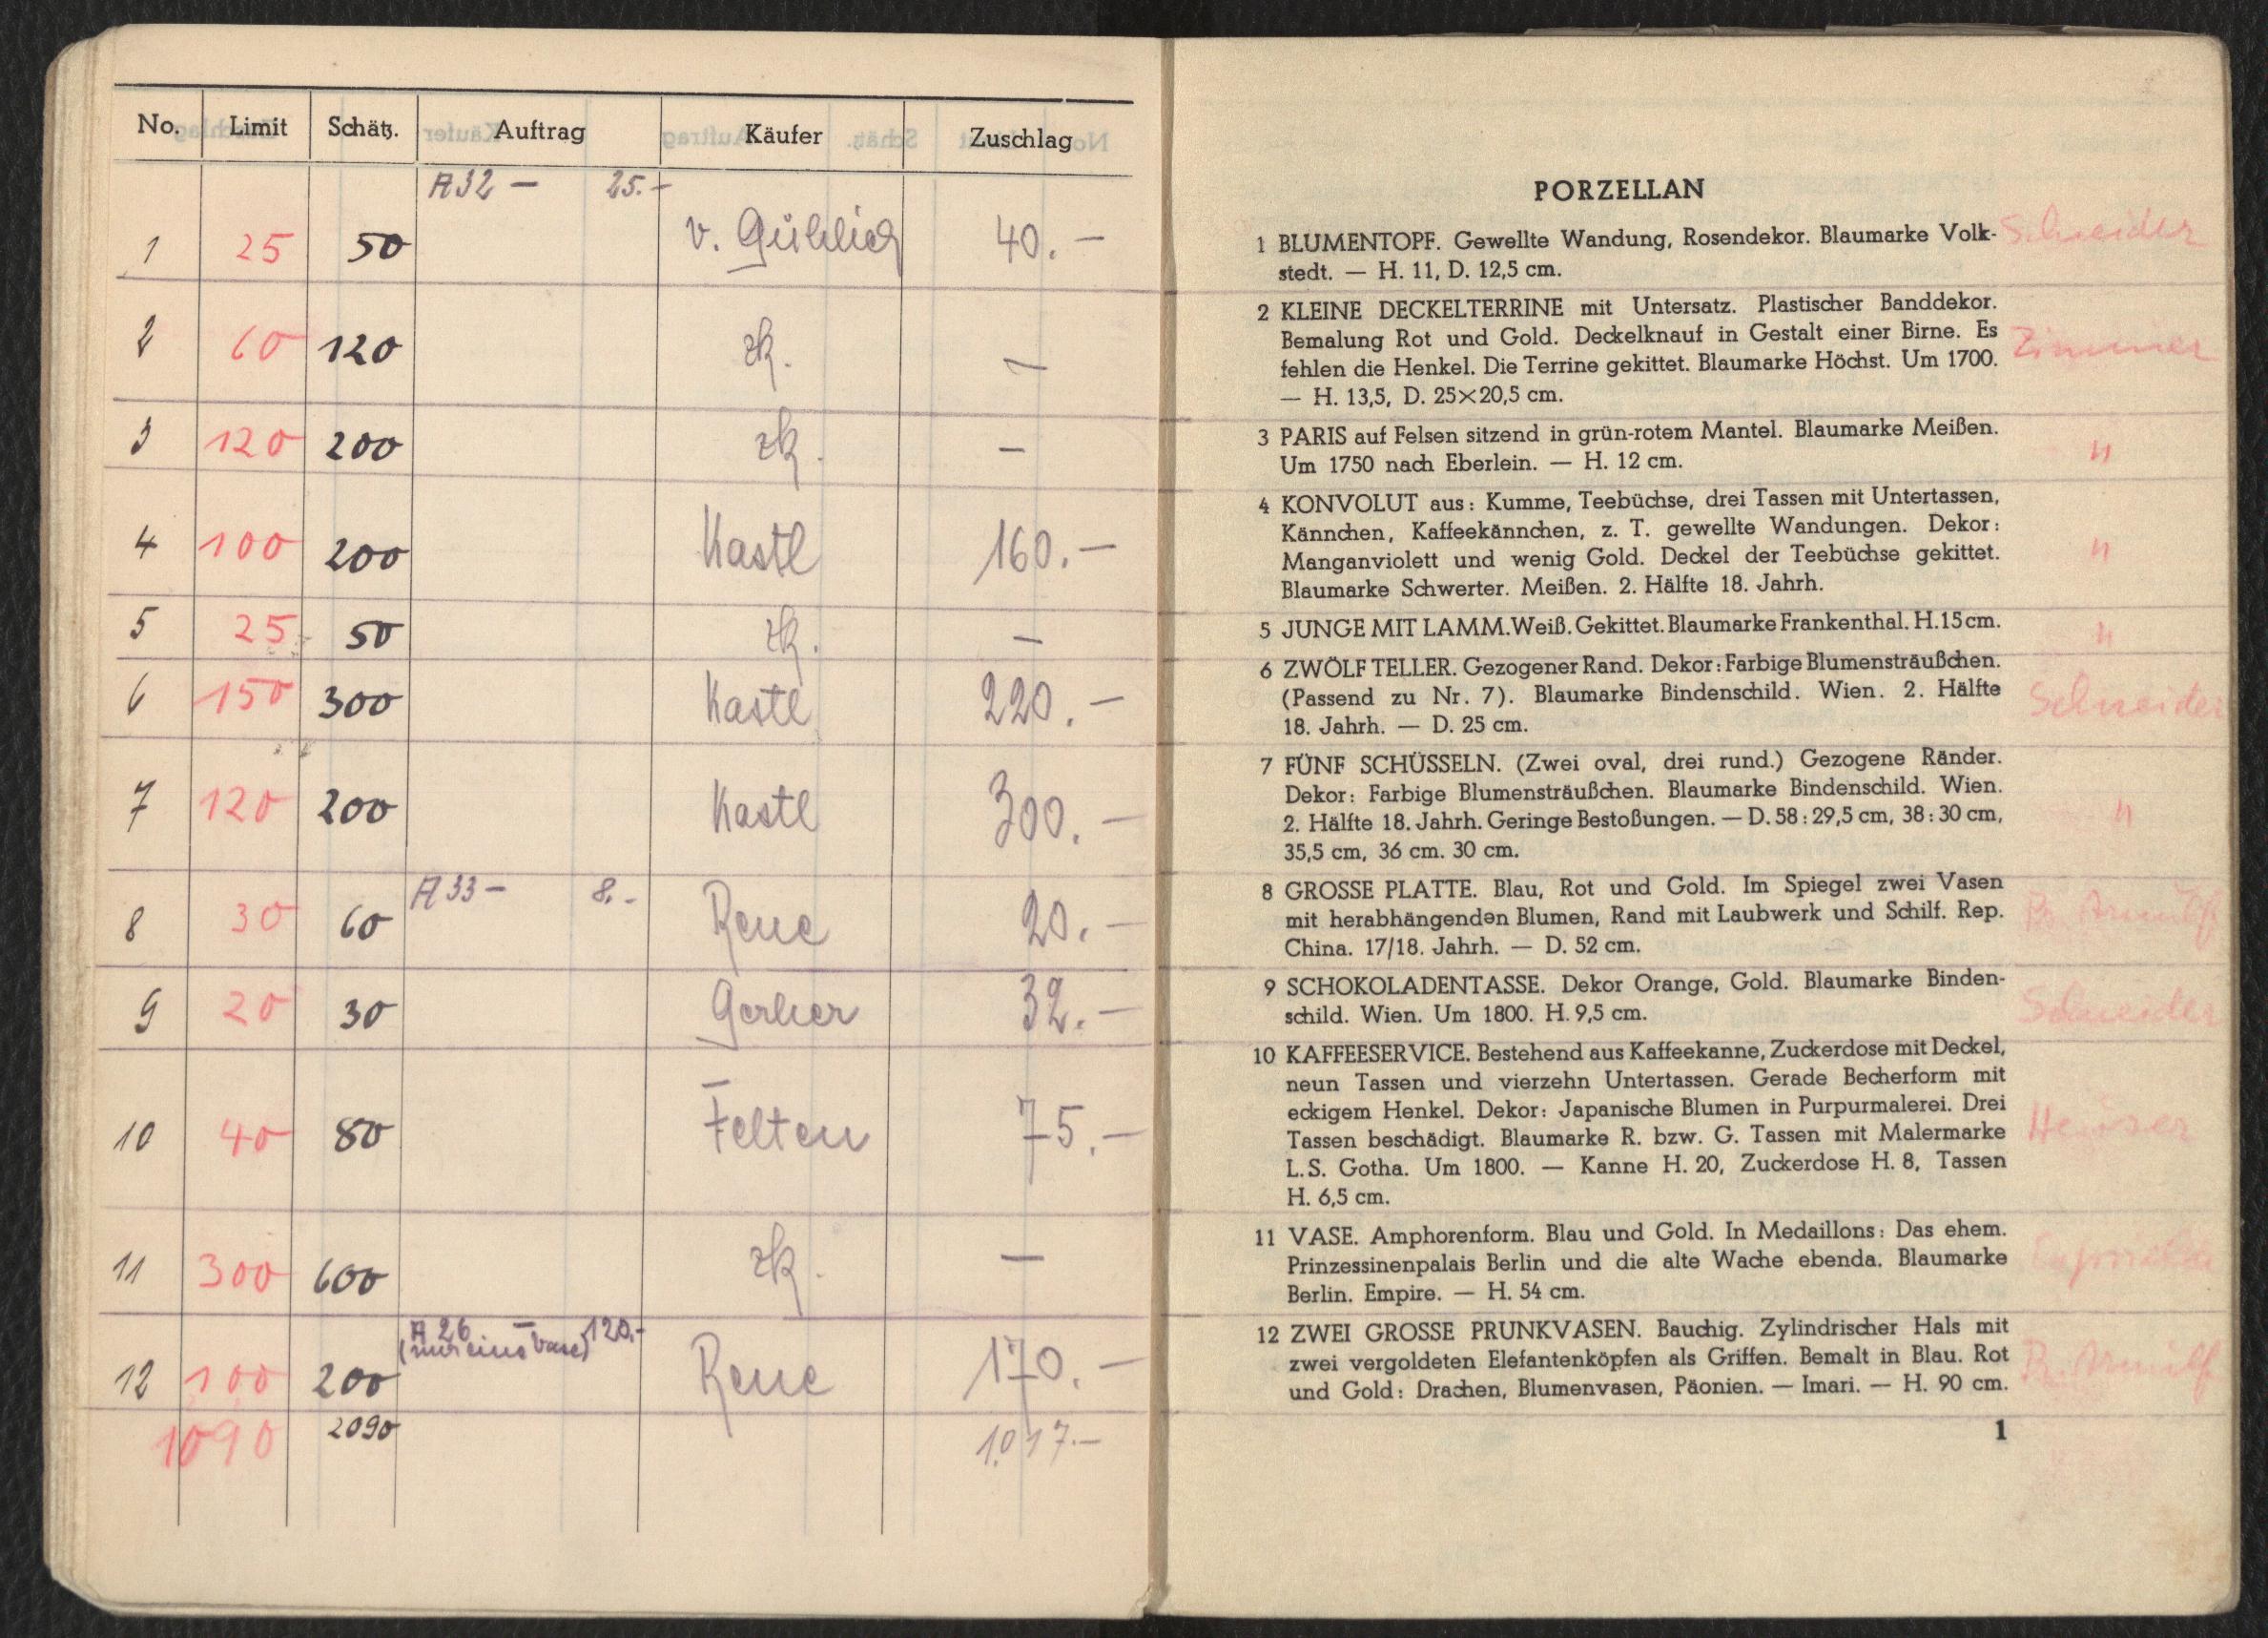 No. Limit Schätz. Auftrag Käufer Zuschlag
A 32 — 25.-
1 25 50 40.—
2 60 120 zk. —
3 120 200 zk. —
4 100 200 Kastl 160.—
5 25 50 zk. —
6 150 300 Kastl 220.—
7 120 200 Kastl 300.—
A 33 — 8.-
8 30 60 Rene 20.—
9 20 30 Gerber 32.—
10 40 80 Felten 75.—
11 300 600 zk. —
A 26 — 120.-
(nur eine Vase)
12 100 200 Rene 170.—
1090 2090 1017.—
PORZELLAN
1 BLUMENTOPF. Gewellte Wandung, Rosendekor. Blaumarke Volk- Schneider
stedt. — H. 11, D. 12,5 cm.
2 KLEINE DECKELTERRINE mit Untersatz. Plastischer Banddekor.
Bemalung Rot und Gold. Deckelknauf in Gestalt einer Birne. Es Zimmer
fehlen die Henkel. Die Terrine gekittet. Blaumarke Höchst. Um 1700.
— H. 13,5, D. 25×20,5 cm.
3 PARIS auf Felsen sitzend in grün-rotem Mantel. Blaumarke Meißen. "
Um 1750 nach Eberlein. — H. 12 cm.
4 KONVOLUT aus: Kumme, Teebüchse, drei Tassen mit Untertassen,
Kännchen, Kaffeekännchen, z. T. gewellte Wandungen. Dekor:
Manganviolett und wenig Gold. Deckel der Teebüchse gekittet. "
Blaumarke Schwerter. Meißen. 2. Hälfte 18. Jahrh.
5 JUNGE MIT LAMM. Weiß. Gekittet. Blaumarke Frankenthal. H. 15 cm. "
6 ZWÖLF TELLER. Gezogener Rand. Dekor: Farbige Blumensträußchen.
(Passend zu Nr. 7). Blaumarke Bindenschild. Wien. 2. Hälfte Schneider
18. Jahrh. — D. 25 cm.
7 FÜNF SCHÜSSELN. (Zwei oval, drei rund.) Gezogene Ränder.
Dekor: Farbige Blumensträußchen. Blaumarke Bindenschild. Wien.
2. Hälfte 18. Jahrh. Geringe Bestoßungen. — D. 58 : 29,5 cm, 38 : 30 cm, "
35,5 cm, 36 cm. 30 cm.
8 GROSSE PLATTE. Blau, Rot und Gold. Im Spiegel zwei Vasen
mit herabhängenden Blumen, Rand mit Laubwerk und Schilf. Rep. Pr. Arnulf
China. 17/18. Jahrh. — D. 52 cm.
9 SCHOKOLADENTASSE. Dekor Orange, Gold. Blaumarke Binden- Schneider
schild. Wien. Um 1800. H. 9,5 cm.
10 KAFFEESERVICE. Bestehend aus Kaffeekanne, Zuckerdose mit Deckel,
neun Tassen und vierzehn Untertassen. Gerade Becherform mit
eckigem Henkel. Dekor: Japanische Blumen in Purpurmalerei. Drei
Tassen beschädigt. Blaumarke R. bzw. G. Tassen mit Malermarke
L. S. Gotha. Um 1800. — Kanne H. 20, Zuckerdose H. 8, Tassen
H. 6,5 cm.
11 VASE. Amphorenform. Blau und Gold. In Medaillons: Das ehem.
Prinzessinenpalais Berlin und die alte Wache ebenda. Blaumarke
Berlin. Empire. — H. 54 cm.
12 ZWEI GROSSE PRUNKVASEN. Bauchig. Zylindrischer Hals mit
zwei vergoldeten Elefantenköpfen als Griffen. Bemalt in Blau. Rot Pr. Arnulf
und Gold: Drachen, Blumenvasen, Päonien. — Imari. — H. 90 cm.
1